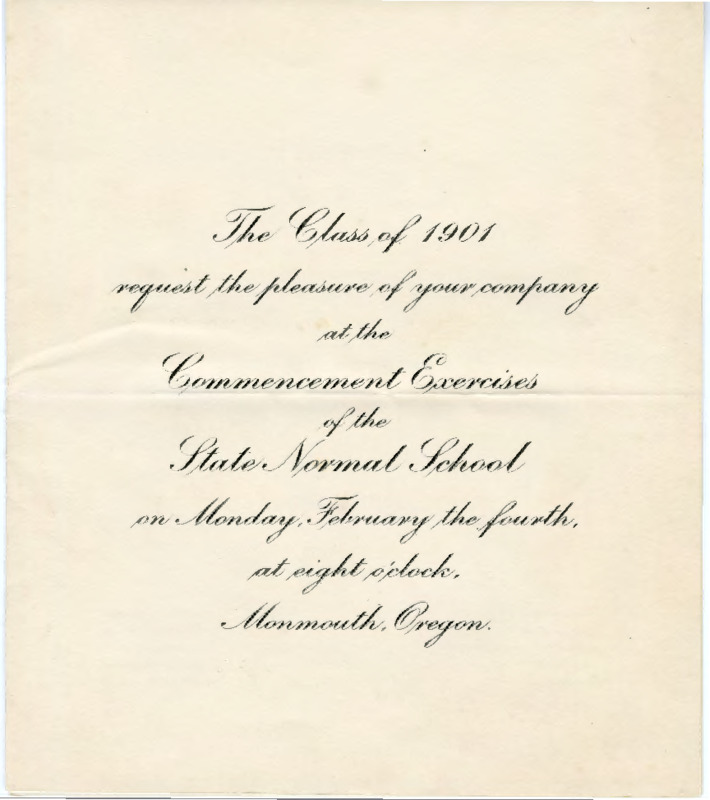 The Class of 1901
request the pleasure of your company
at the
Commencement Exercises
of the
State Normal School
on Monday, February the fourth,
at eight o'clock,
Monmouth, Oregon.